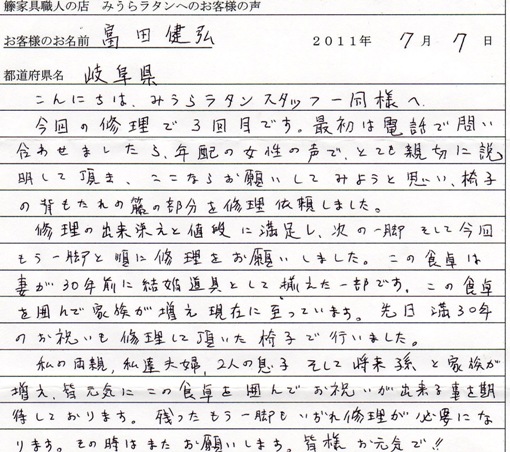 籐家具職人の店　みうらラタンへのお客様の声
お客様のお名前　高田健弘　2011年　7月　7日
都道府県名　岐阜県
こんにちは、みうらラタンスタッフ一同様へ
今回の修理で3回目です。最初は電話で問い
合わせましたら、年配の女性の声で、とても親切に説
明して頂き、ここならお願いしてみようと思い、椅子
の背もたれの籐の部分を修理依頼しました。
修理の出来栄えと値段に満足し、次の一脚そして今回
もう一脚と順に修理をお願いしました。この食卓は
妻が30年前に結婚道具として揃えた一部です。この食卓
を囲んで家族が増え現在に至っています。先日満30年
のお祝いも修理して頂いた椅子で行いました。
私の両親,私達夫婦,2人の息子そして将来孫と家族が
増え、皆元気にこの食卓を囲んでお祝いが出来る事を期
待しております。残ったもう一脚もいずれ修理が必要にな
ります。その時はまたお願いします。皆様お元気で!!